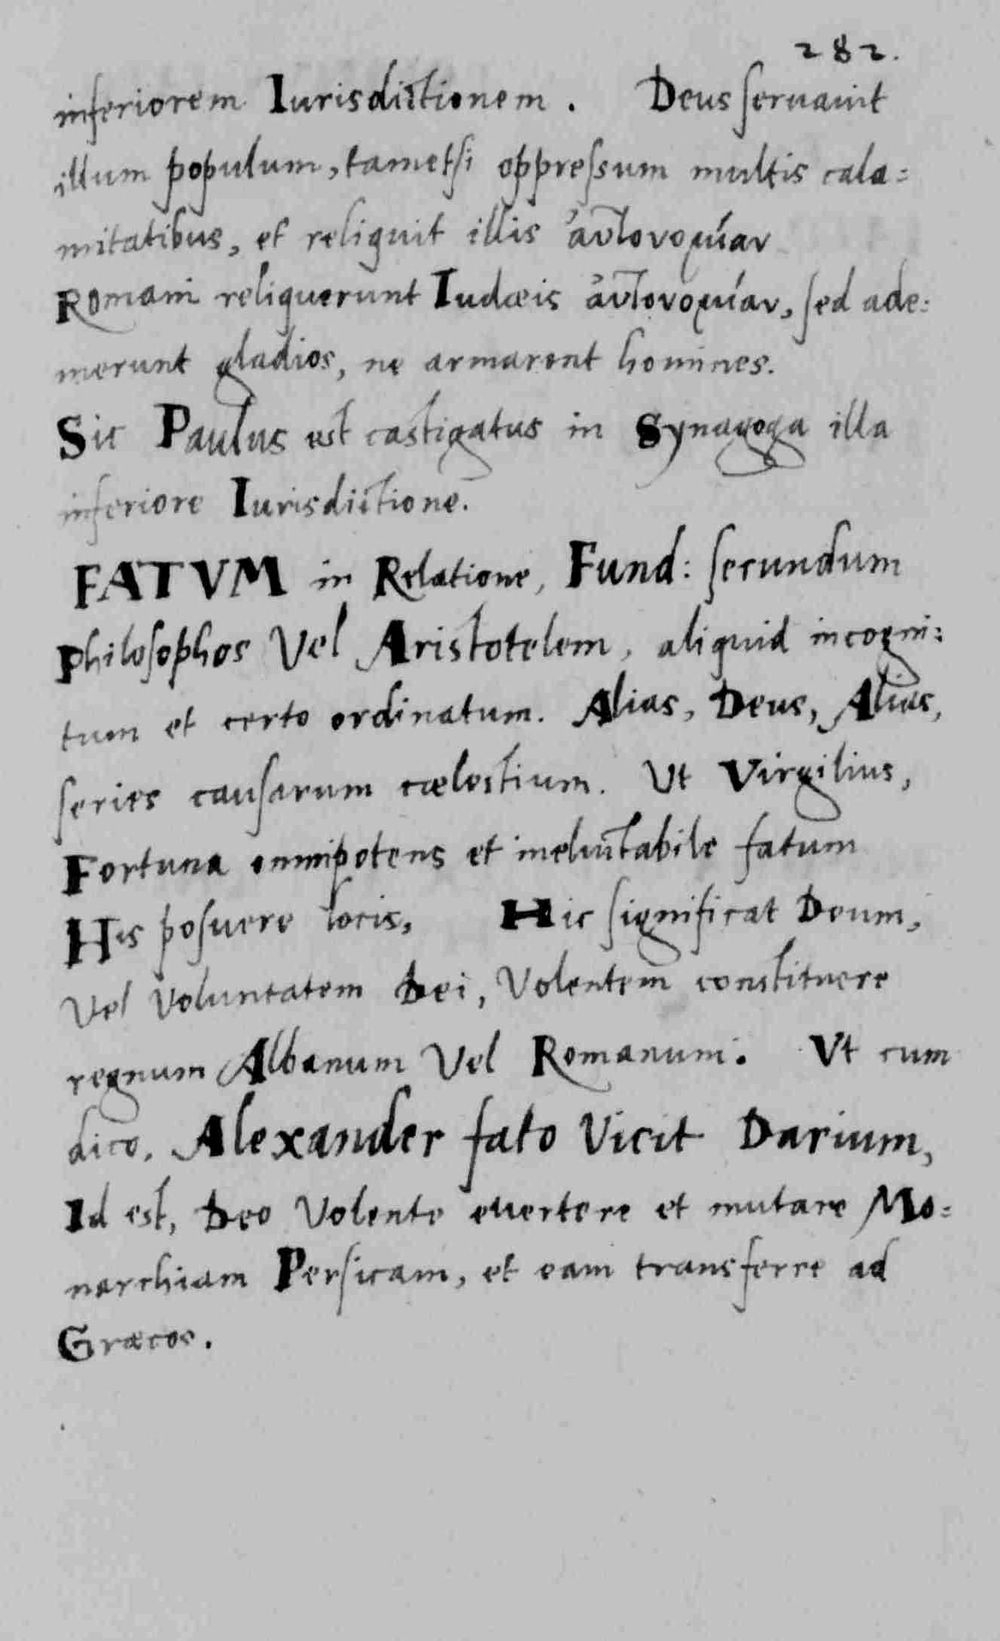 282.
inferiorem Iurisdictionem. Deus seruauit
illum populum, tametsi oppressum multis cala=
mitatibus, et reliquit illis ἀυτονομίαν
Romani reliquerunt Iudæis ἀυτονομίαν, sed ade:
merunt gladios, ne armarent homines.
Sic Paulus est castigatus in Synagoga illa
inferiore Iurisdictione.
FATVM in Relatione, Fund: secundum
Philosophos Vel Aristotelem, aliquid incogni:
tum et certo ordinatum. Alias, Deus, Alias,
series causarum cælestium. Ut Virgilius,
Fortuna omnipotens et ineluctabile fatum
His posuere locis, Hic significat Deum,
Vel Voluntatem Dei, Volentem constituere
regnum Albanum Vel Romanum. Vt cum
dico. Alexander fato Vicit Darium,
Id est, Deo Volente euertere et mutare Mo=
narchiam Persicam, et eam transferre ad
Græcos.